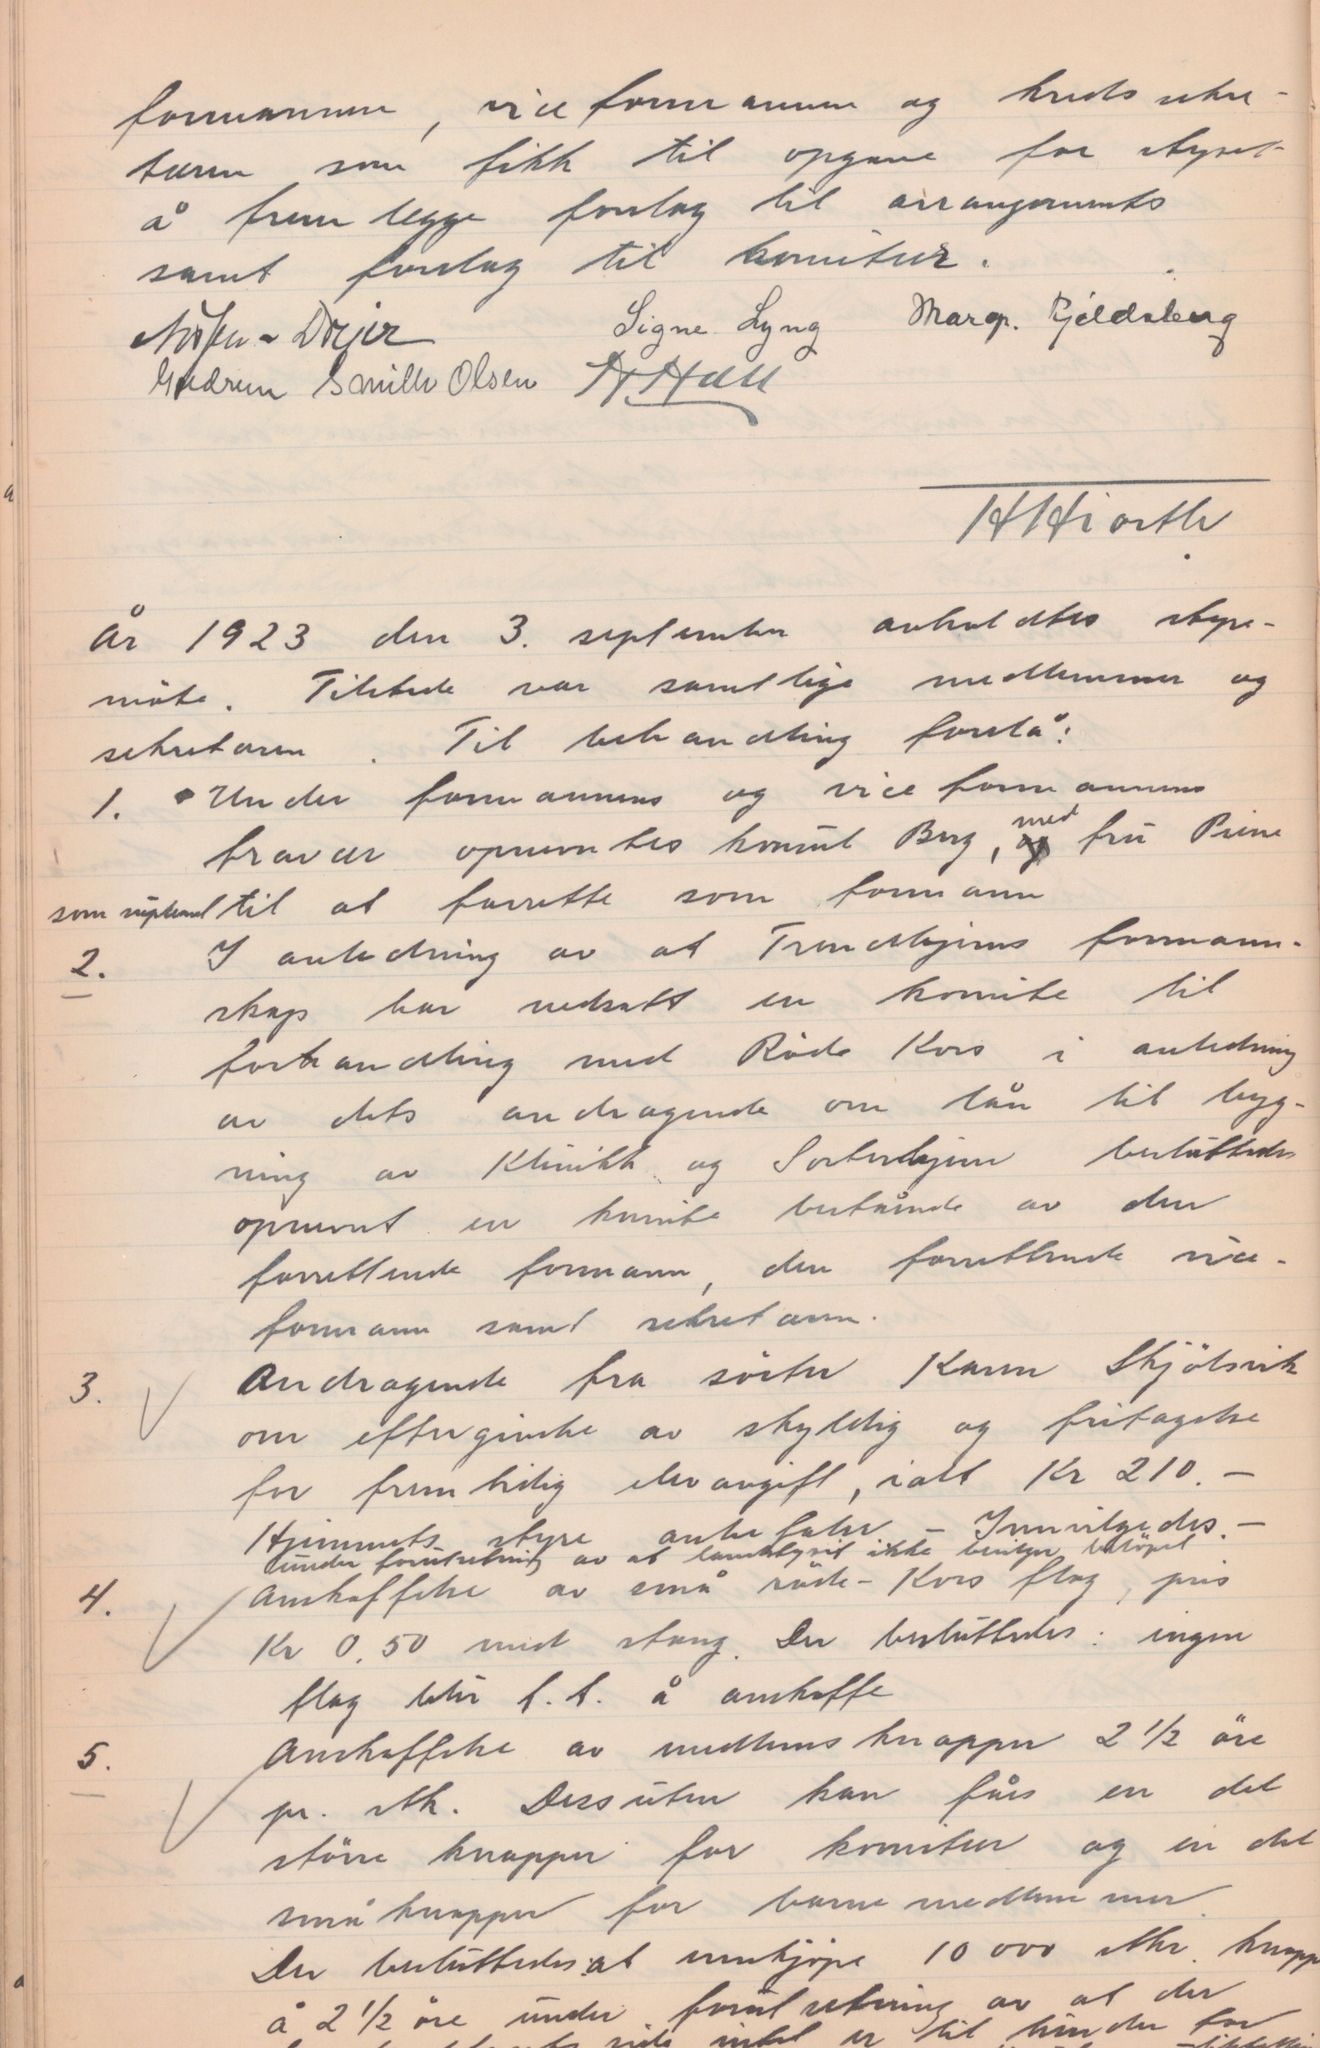 formannen, viceformannen og kredssekre-
tæren som fikk til opgave for styret
å fremlegge forslag til arrangements
samt forslag til komitéer.
Signe Lyng Marg. Kjeldsberg
Gudrun Smith Olsen H. Hall
H Hiorth
År 1923 den 3. september avholdtes styre-
möte. Tilstede var samtlige medlemmer og
sekretæren. Til behandling forelå:
1. Under formannens og viceformannens
fravær opnevntes konsul Berg, med fru Piene
som suppleant til at forrette som formann
2. I anledning av at Trondhjems formann-
skap har nedsatt en komite til
forhandling med Röde Kors i anledning
av dets andragende om lån til byg-
ning av Klinikk og Sösterhjem besluttedes
opnevnt en komite bestående av den
forrettende formann, den forrettende vice-
formann samt sekretæren.
3. Andragende fra söster Karen Skjölsvik
om eftergivelse av skyldig og fritagelse
for fremtidig elevavgift, ialt Kr 210.—
Hjemmets styre anbefaler — Innvilgedes.—
under forutsetning av at landsstyret ikke bevilger belöpet
4. Anskaffelse av små röde-Kors flag, pris
Kr 0.50 med stang. Der besluttedes: ingen
flag blir f.t. å anskaffe
5. Anskaffelse av medlemsknapper 2 1/2 öre
pr. stk. Dessuten kan fåes en del
större knapper for komiteer og en del
små knapper for barnemedlemmer.
Der besluttedes at innkjöpe 10 000 stkr. knapp
à 2 1/2 öre under forutsetning av at der
side intet er til hinder for